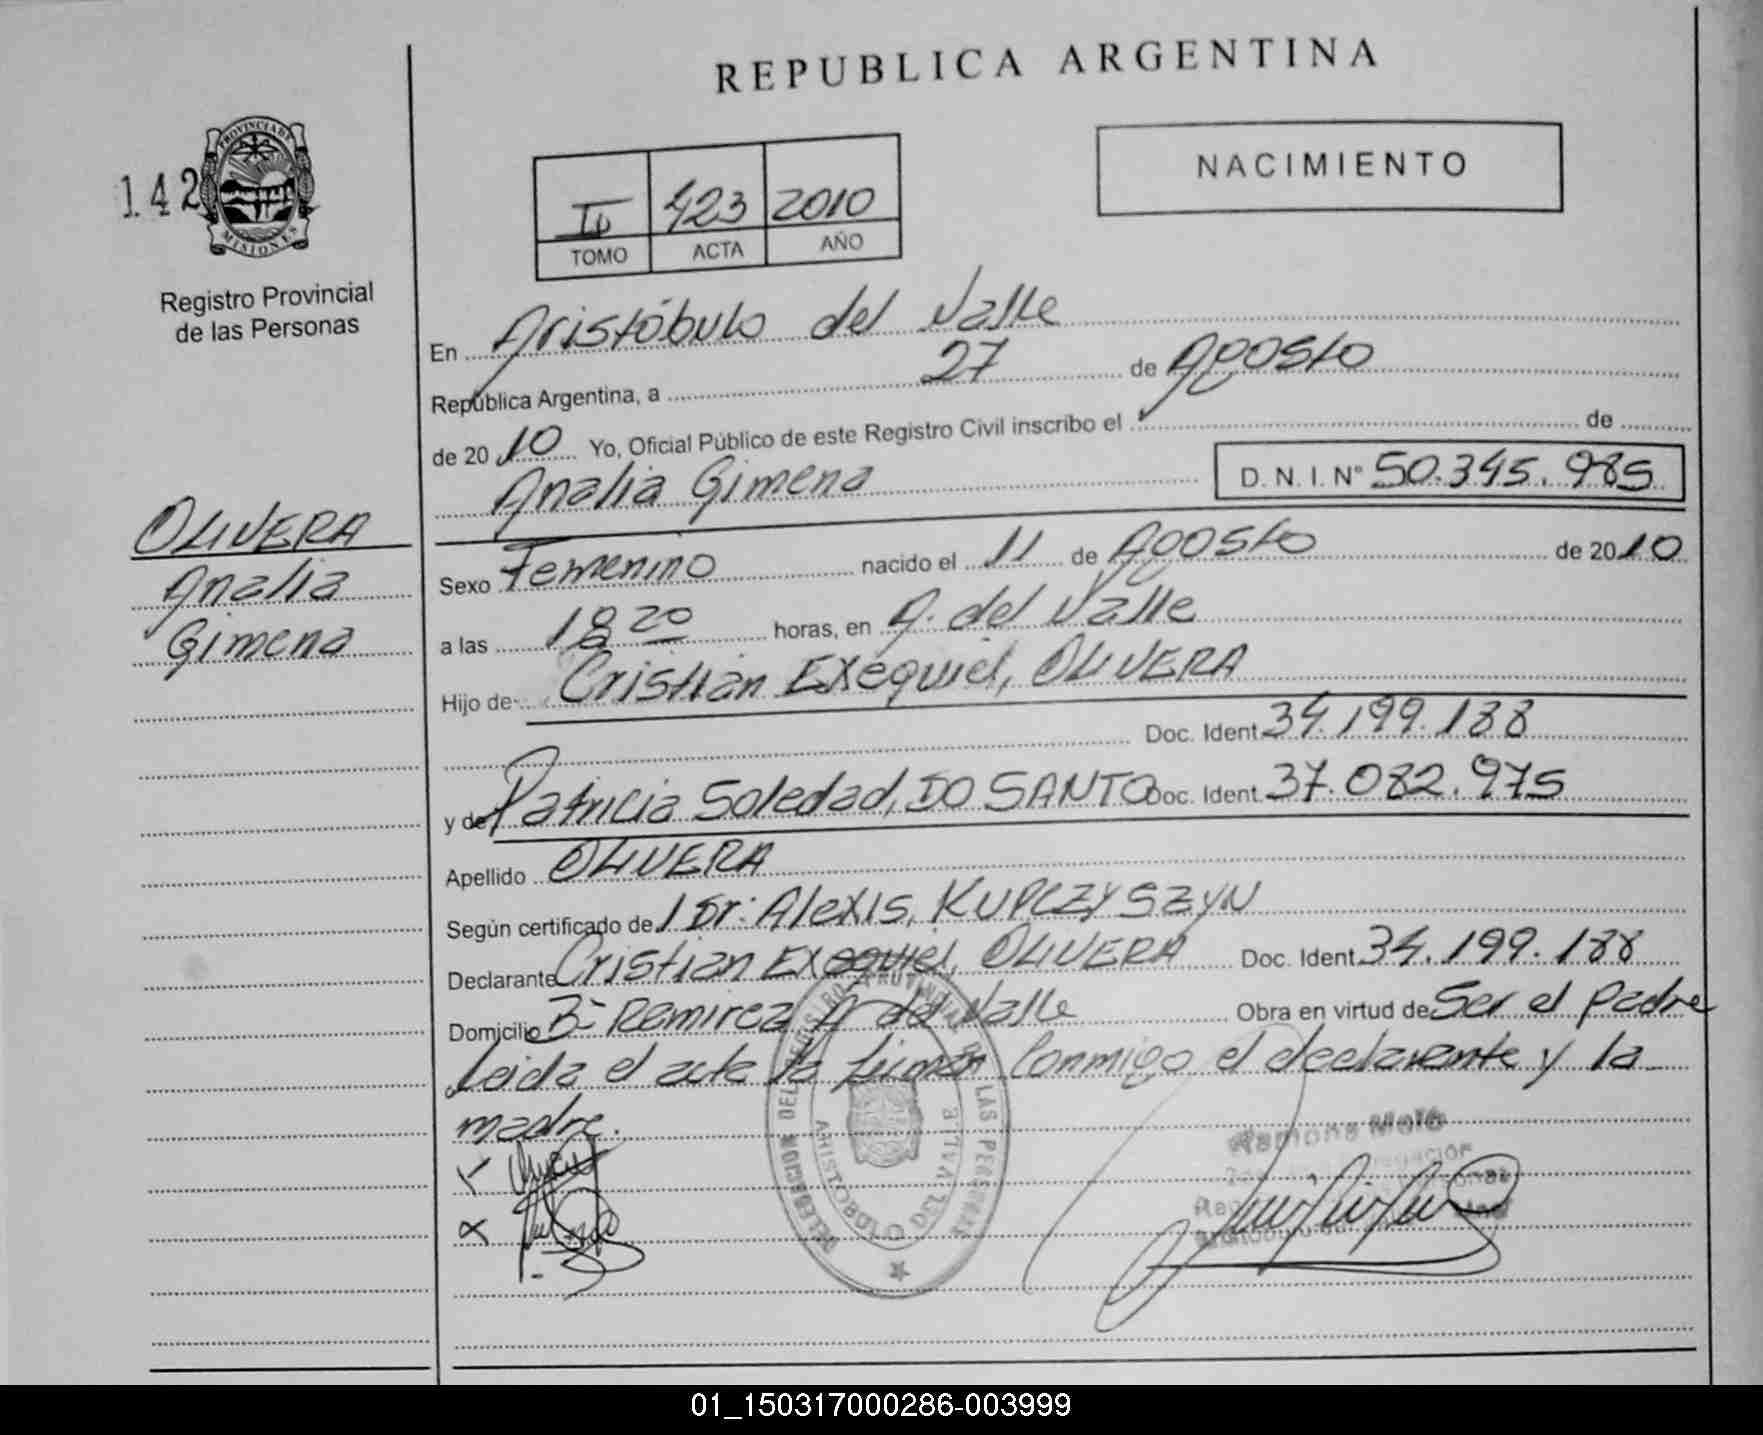 REPUBLICA ARGENTINA
NACIMIENTO
142
PROVINCIA DE
MISIONES
Registro Provincial
de las Personas
423 2010
TOMO ACTA AÑO
En Aristóbulo del Valle
República Argentina, a 27 de Agosto
de 2010 Yo, Oficial Público de este Registro Civil inscribo el de
Analia Gimena D.N.I. N° 50.345.985
OLIVERA
Analia
Gimena
Sexo Femenino nacido el 11 de Agosto de 2010
a las 18 20 horas, en A. del Valle
Hijo de Cristian Exequiel, OLIVERA
Doc. Ident. 34.199.188
y de Patricia Soledad, DO SANTO Doc. Ident. 37.082.975
Apellido OLIVERA
Según certificado de Dr: Alexis, KUPCZYSZYN
Declarante Cristian Exequiel, OLIVERA Doc. Ident. 34.199.188
Domicilio B° Ramirez A. del Valle Obra en virtud de Ser el padre
Leida el acta la firman Conmigo el declarante y la
madre.
DEL REGISTRO PROVINCIAL DE LAS PERSONAS
ARISTOBULO DEL VALLE
Ramona
01_150317000286-003999